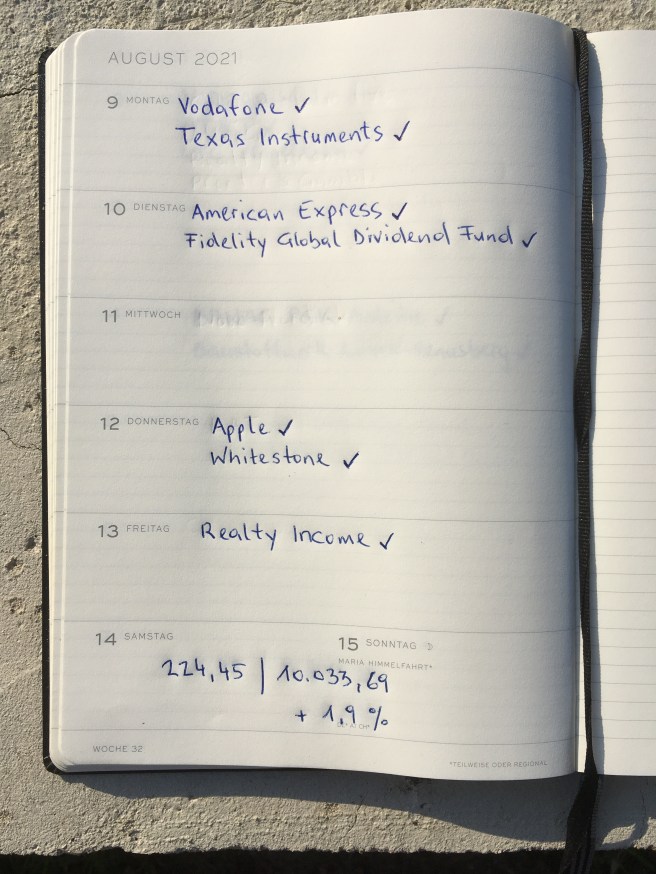 AUGUST 2021
9 MONTAG Vodafone ✓
Texas Instruments ✓
10 DIENSTAG American Express ✓
Fidelity Global Dividend Fund ✓
11 MITTWOCH
12 DONNERSTAG Apple ✓
Whitestone ✓
13 FREITAG Realty Income ✓
14 SAMSTAG
15 SONNTAG
MARIÄ HIMMELFAHRT*
224,45 | 10.033,69
+ 1,9 %
WOCHE 32
*TEILWEISE ODER REGIONAL